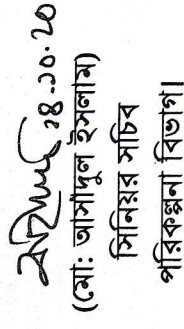 ১৪.১০.২০
(মো: আসাদুল ইসলাম)
সিনিয়র সচিব
পরিকল্পনা বিভাগ।